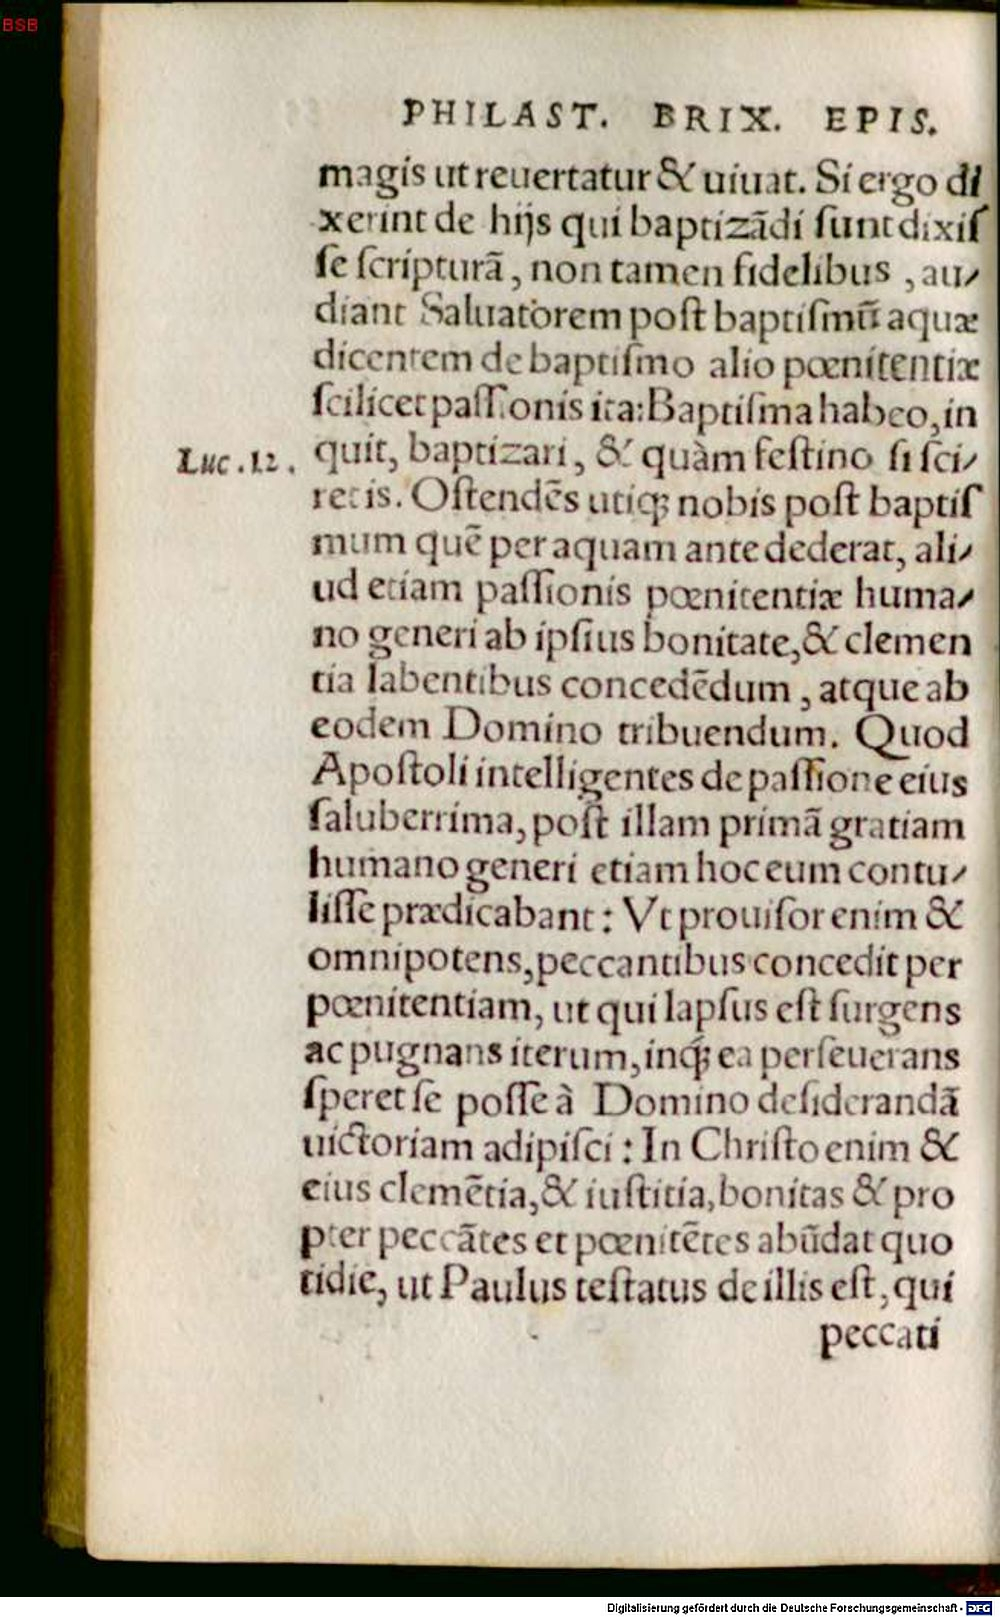 BSB
PHILAST. BRIX. EPIS.
magis ut reuertatur & uiuat. Si ergo di
xerint de hijs qui baptizãdi ſunt dixiſ
ſe ſcripturã, non tamen fidelibus, au⸗
diant Saluatorem poſt baptiſmũ aquæ
dicentem de baptiſmo alio pœnitentiæ
ſcilicet paſſionis ita: Baptiſma habeo, in
Luc. 12. quit, baptizari, & quàm feſtino ſi ſci⸗
retis. Oſtendẽs utiq; nobis poſt baptiſ
mum quẽ per aquam ante dederat, ali⸗
ud etiam paſſionis pœnitentiæ huma⸗
no generi ab ipſius bonitate, & clemen
tia labentibus concedẽdum, atque ab
eodem Domino tribuendum. Quod
Apoſtoli intelligentes de paſſione eius
ſaluberrima, poſt illam primã gratiam
humano generi etiam hoc eum contu⸗
liſſe prædicabant: Vt prouiſor enim &
omnipotens, peccantibus concedit per
pœnitentiam, ut qui lapſus eſt ſurgens
ac pugnans iterum, inq́; ea perſeuerans
ſperet ſe poſſe à Domino deſiderandã
uictoriam adipiſci: In Chriſto enim &
eius clemẽtia, & iuſtitia, bonitas & pro
pter peccãtes et pœnitẽtes abũdat quo
tidie, ut Paulus teſtatus de illis eſt, qui
peccati
Digitalisierung gefördert durch die Deutsche Forschungsgemeinschaft - DFG